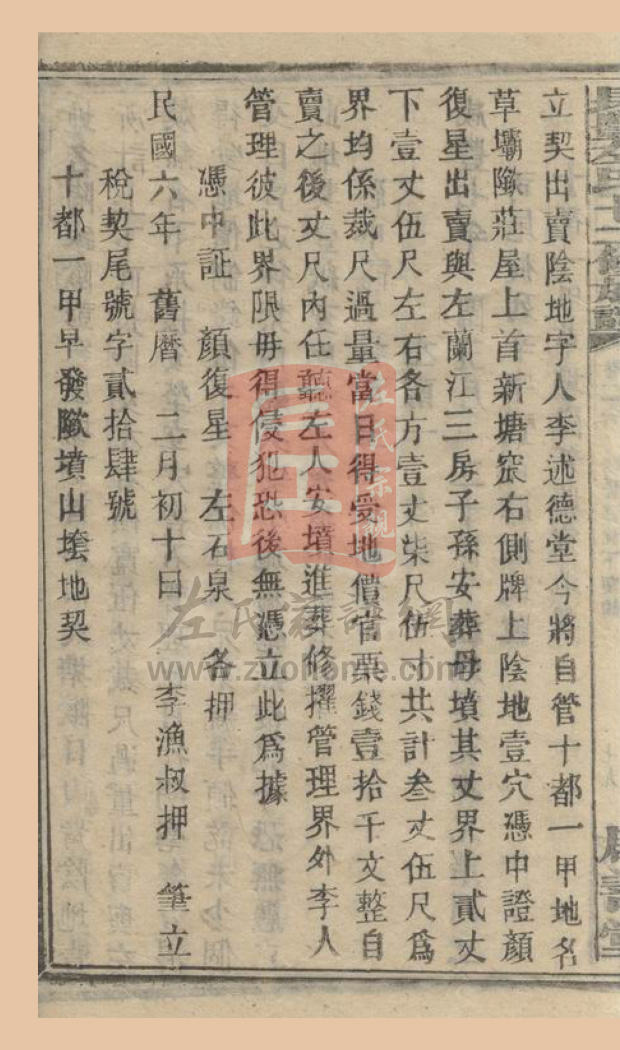 立契出賣陰地字人李述德堂今將自管十都一甲地名
草壩歟莊屋上首新塘窊右側牌上陰地壹穴憑中證顏
復星出賣與左蘭江三房子孫安葬毋墳其丈界上貳丈
下壹丈伍尺左右各方壹丈柒尺伍寸共計叁丈伍尺爲
界均係裁尺過量當日得受地價官票錢壹拾千文整自
賣之後丈尺內任聽左人安墳進葬修擢管理界外李人
管理彼此界限毋得侵犯恐後無憑立此爲據
憑中証 顏復星 左石泉 各押
民國六年 舊曆 二月初十日 李漁叔押 筆立
稅契尾號字貳拾肆號
十都一甲早發歟墳山堘地契
左氏宗親
左氏族譜網
www.zuohome.com